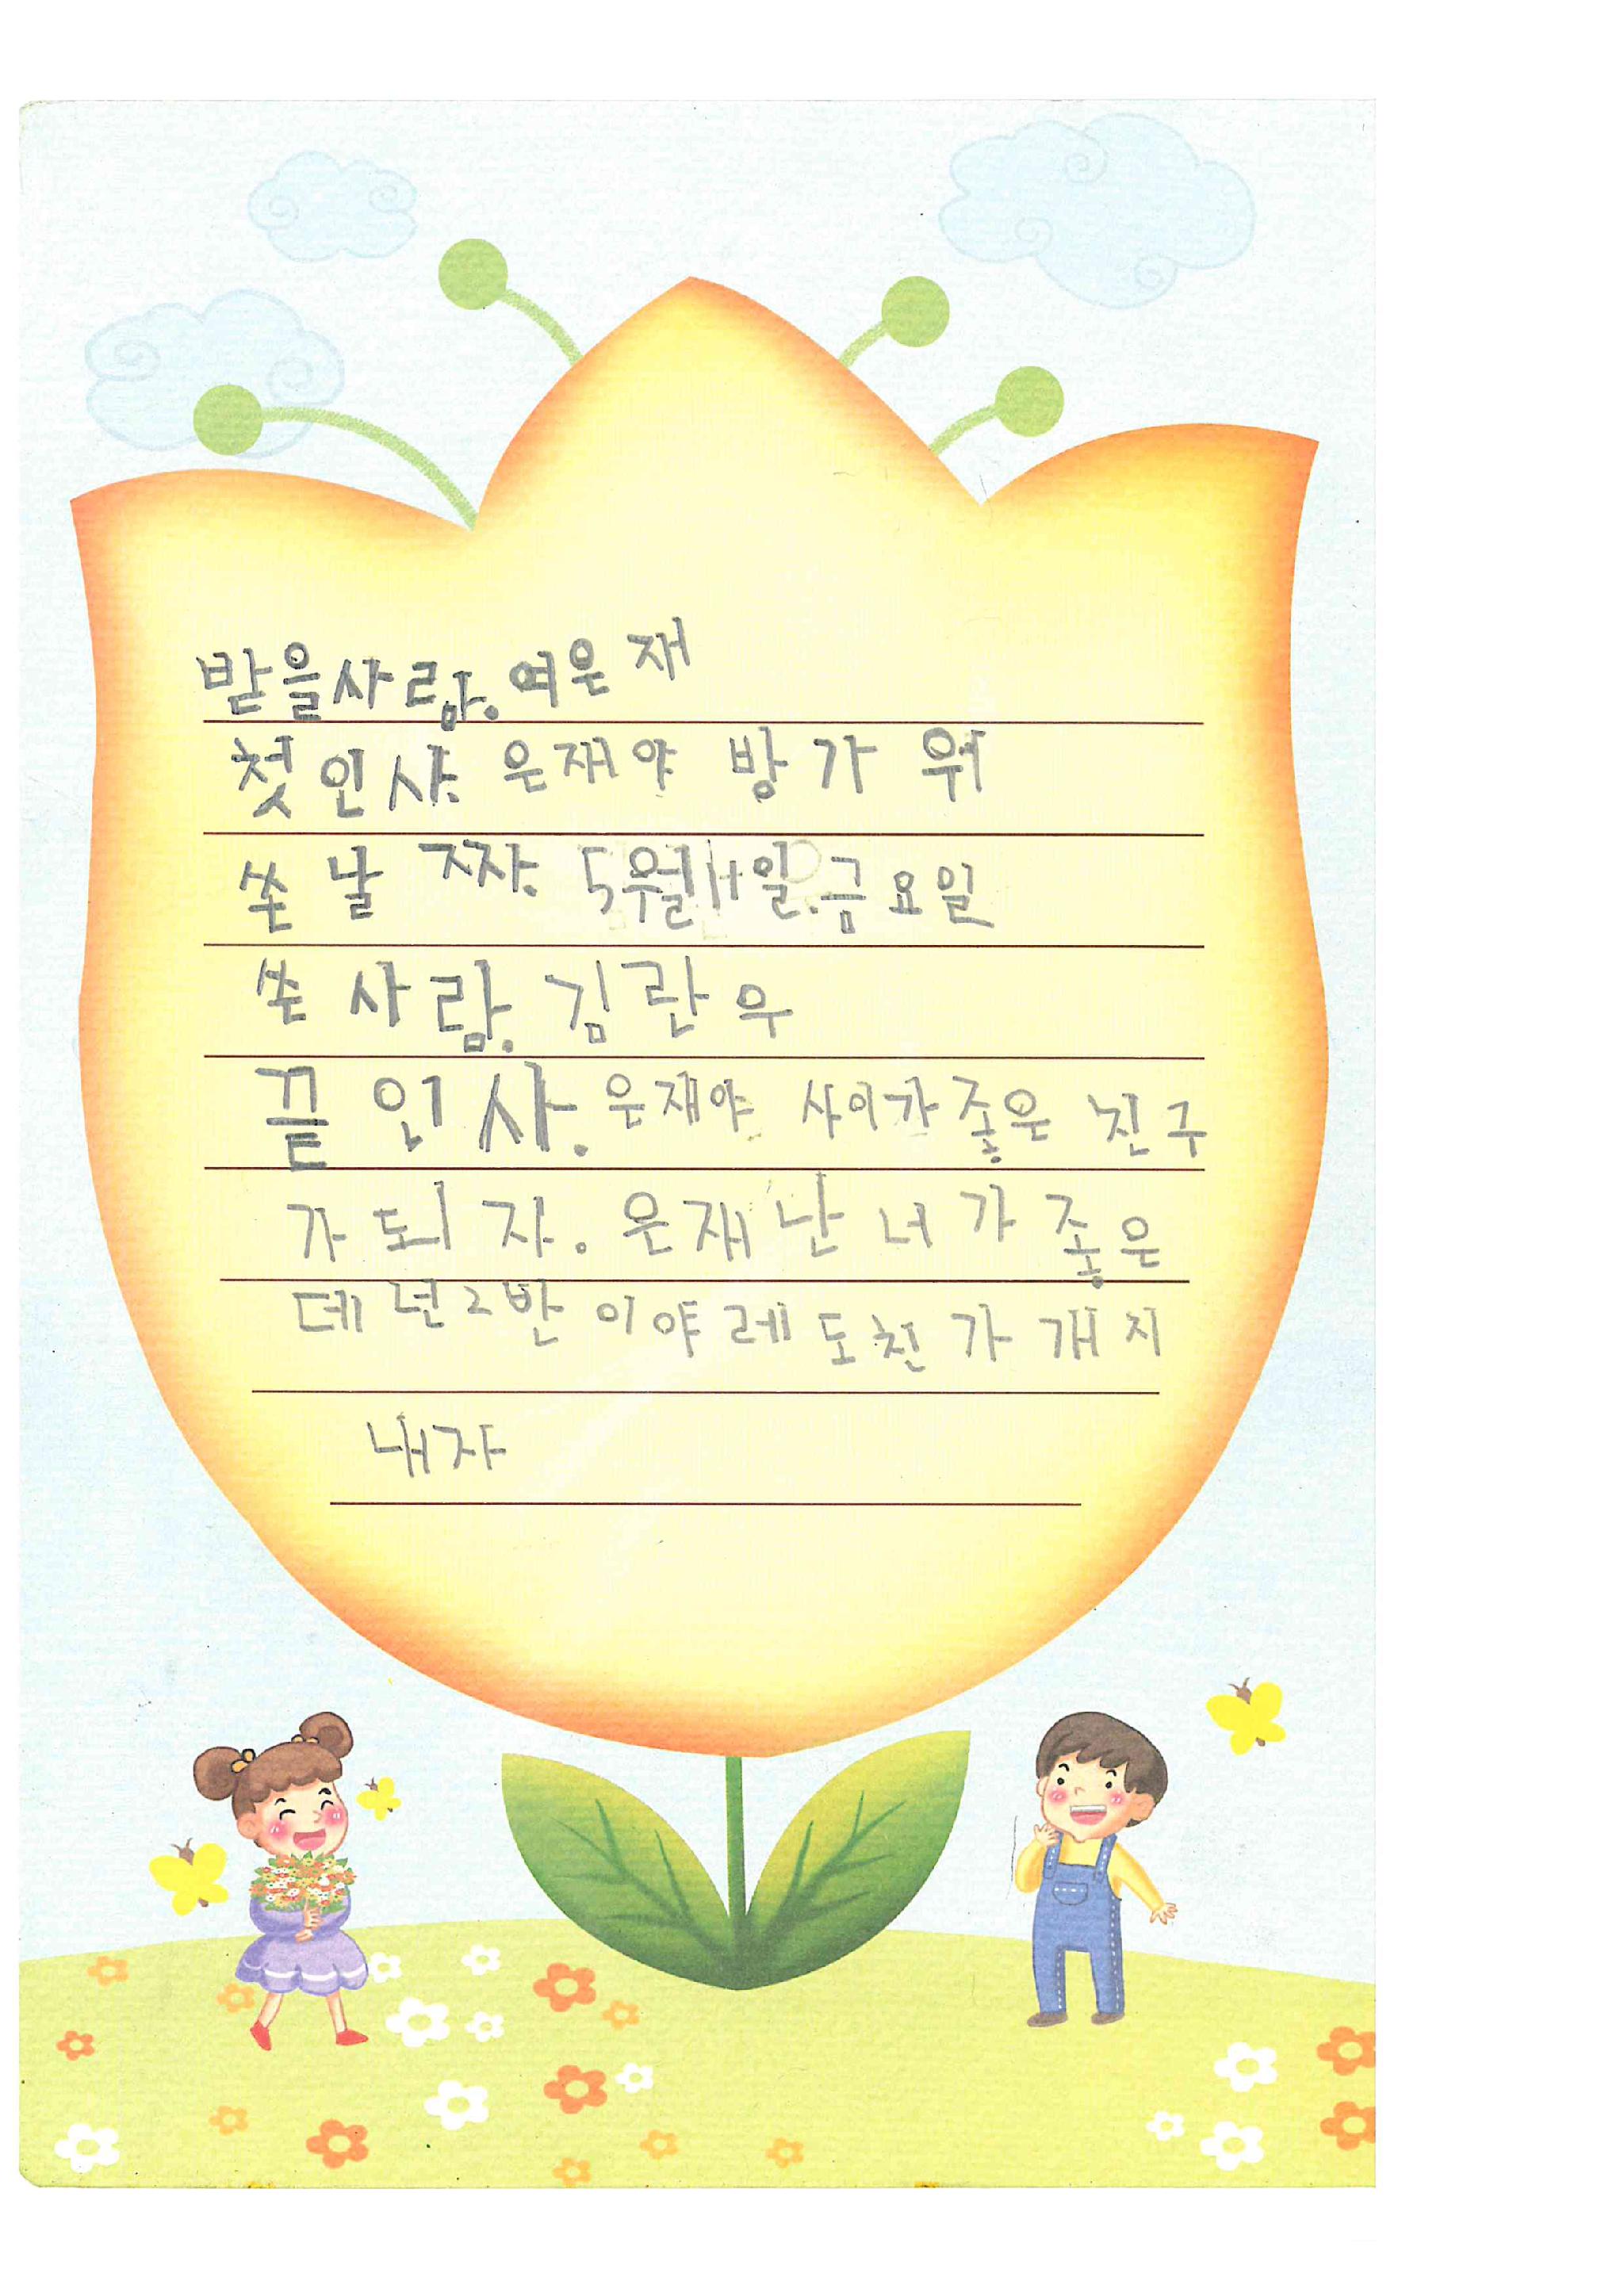 받을사람. 여은재
첫인사. 은재야 방가워
쓴 날짜. 5월11일.금요일
쓴 사람. 김관우
끝인사. 은재야 사이가좋은 친구
가되자. 은재 난 너가 좋은
데 넌2반이야 레도친가개지
내자